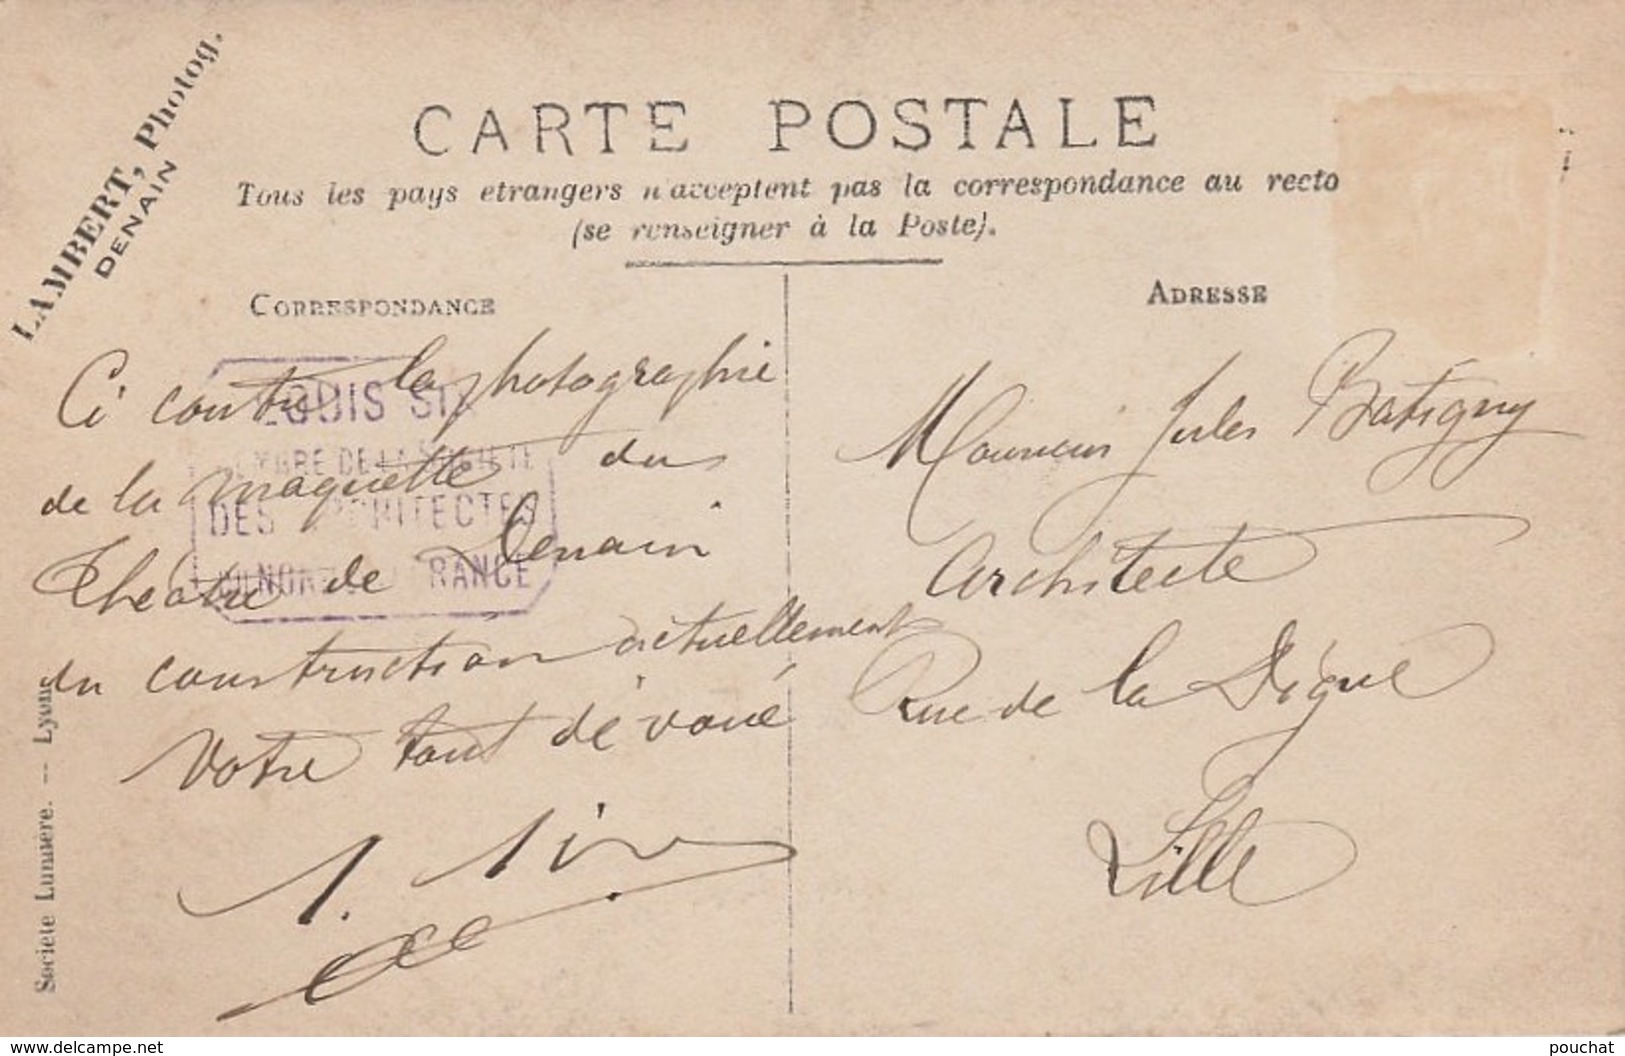 LAMBERT, Photog.
DENAIN
CARTE POSTALE
Tous les pays etrangers n'acceptent pas la correspondance au recto
(se renseigner à la Poste).
CORRESPONDANCE
ADRESSE
Ci contre la photographie
de la maquette du
théâtre de Denain
en construction actuellement
Votre tout dévoué
LOUIS SIX
MEMBRE DE LA SOCIETE
DES ARCHITECTES
DU NORD DE LA FRANCE
Monsieur Jules Batigny
Architecte
Rue de la Digue
Lille
Societe Lumière. -- Lyon
www.delcampe.net
pouchat